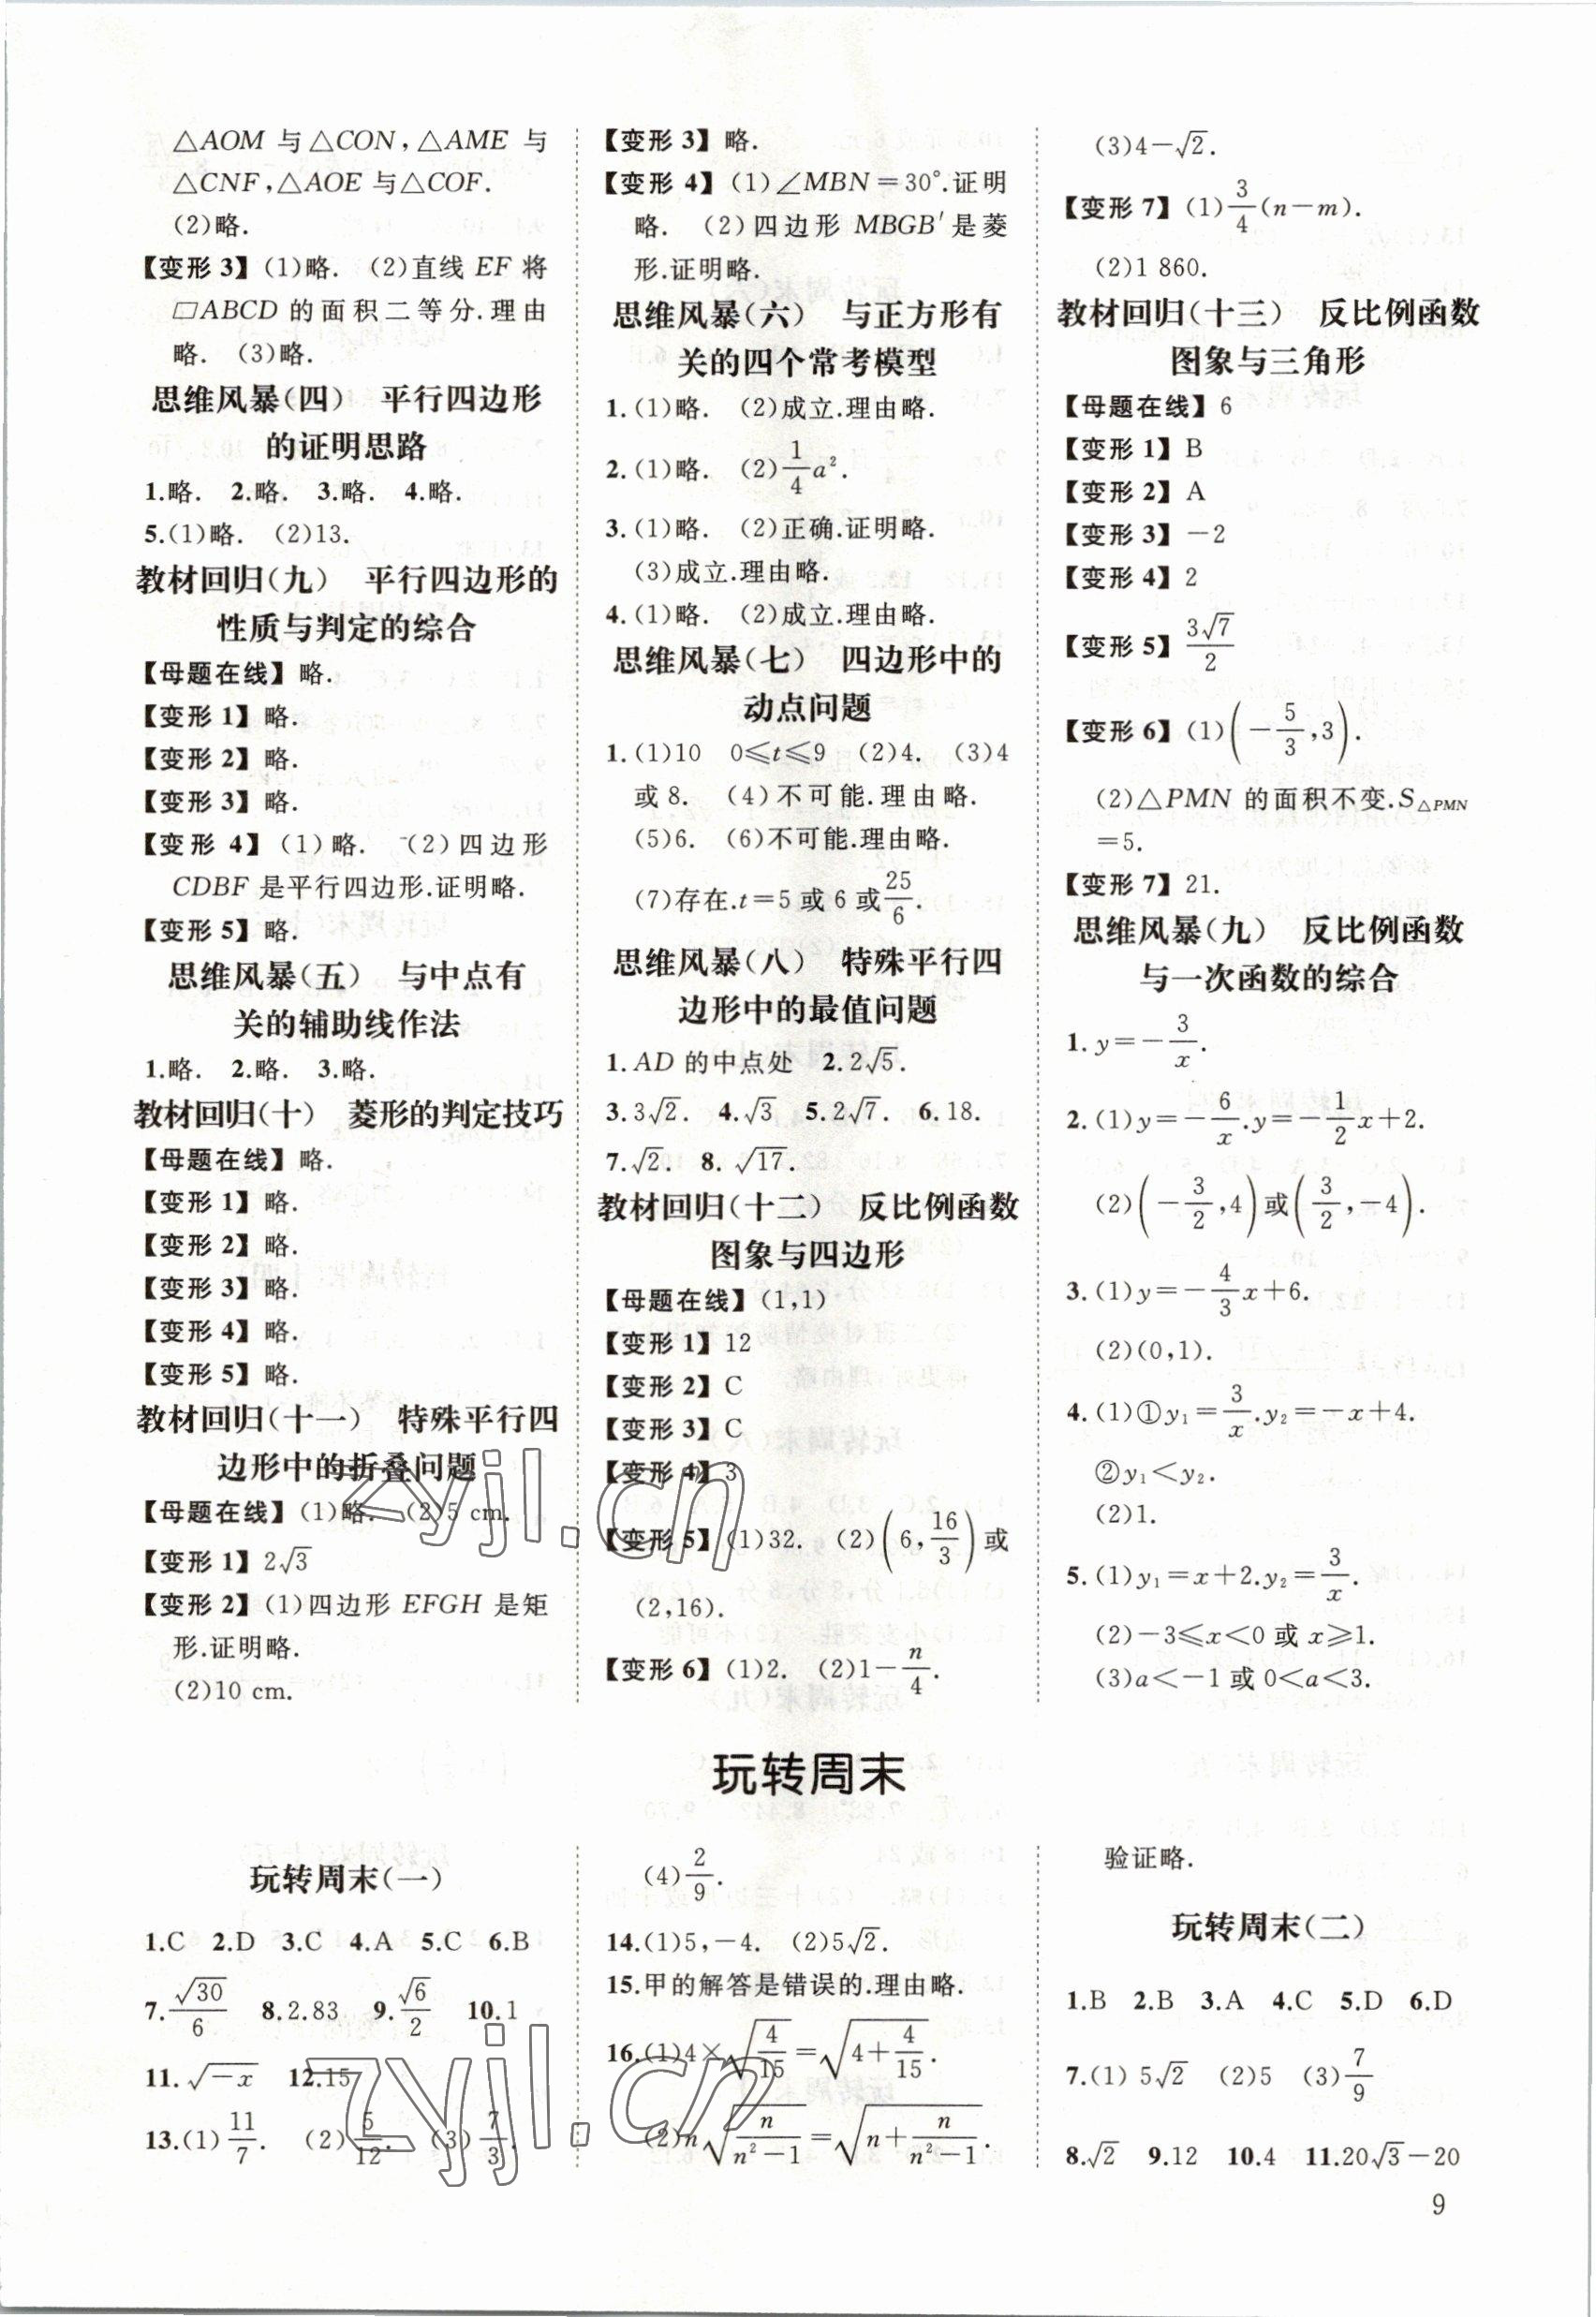 △AOM 与△CON,△AME 与
△CNF,△AOE 与△COF.
(2)略.
【变形 3】(1)略. (2)直线 EF 将
▱ABCD 的面积二等分.理由
略. (3)略.
思维风暴(四) 平行四边形
的证明思路
1.略. 2.略. 3.略. 4.略.
5.(1)略. (2)13.
教材回归(九) 平行四边形的
性质与判定的综合
【母题在线】略.
【变形 1】略.
【变形 2】略.
【变形 3】略.
【变形 4】(1)略. (2)四边形
CDBF 是平行四边形.证明略.
【变形 5】略.
思维风暴(五) 与中点有
关的辅助线作法
1.略. 2.略. 3.略.
教材回归(十) 菱形的判定技巧
【母题在线】略.
【变形 1】略.
【变形 2】略.
【变形 3】略.
【变形 4】略.
【变形 5】略.
教材回归(十一) 特殊平行四
边形中的折叠问题
【母题在线】(1)略. (2)5 cm.
【变形 1】2√3
【变形 2】(1)四边形 EFGH 是矩
形.证明略.
(2)10 cm.
【变形 3】略.
【变形 4】(1)∠MBN=30°.证明
略. (2)四边形 MBGB′是菱
形.证明略.
思维风暴(六) 与正方形有
关的四个常考模型
1.(1)略. (2)成立.理由略.
2.(1)略. (2)1/4 a².
3.(1)略. (2)正确.证明略.
(3)成立.理由略.
4.(1)略. (2)成立.理由略.
思维风暴(七) 四边形中的
动点问题
1.(1)10 0≤t≤9 (2)4. (3)4
或 8. (4)不可能.理由略.
(5)6. (6)不可能.理由略.
(7)存在.t=5 或 6 或 25/6.
思维风暴(八) 特殊平行四
边形中的最值问题
1.AD 的中点处 2.2√5.
3.3√2. 4.√3 5.2√7. 6.18.
7.√2. 8.√17.
教材回归(十二) 反比例函数
图象与四边形
【母题在线】(1,1)
【变形 1】12
【变形 2】C
【变形 3】C
【变形 4】3
【变形 5】(1)32. (2)(6,16/3)或
(2,16).
【变形 6】(1)2. (2)1-n/4.
(3)4-√2.
【变形 7】(1)3/4(n-m).
(2)1 860.
教材回归(十三) 反比例函数
图象与三角形
【母题在线】6
【变形 1】B
【变形 2】A
【变形 3】-2
【变形 4】2
【变形 5】3√7/2
【变形 6】(1)(-5/3,3).
(2)△PMN 的面积不变.S△PMN
=5.
【变形 7】21.
思维风暴(九) 反比例函数
与一次函数的综合
1.y=-3/x.
2.(1)y=-6/x.y=-1/2 x+2.
(2)(-3/2,4)或(3/2,-4).
3.(1)y=-4/3 x+6.
(2)(0,1).
4.(1)①y₁=3/x.y₂=-x+4.
②y₁<y₂.
(2)1.
5.(1)y₁=x+2.y₂=3/x.
(2)-3≤x<0 或 x≥1.
(3)a<-1 或 0<a<3.
玩转周末
玩转周末(一)
1.C 2.D 3.C 4.A 5.C 6.B
7.√30/6 8.2.83 9.√6/2 10.1
11.√-x 12.15
13.(1)11/7. (2)5/12. (3)7/3.
(4)2/9.
14.(1)5,-4. (2)5√2.
15.甲的解答是错误的.理由略.
16.(1)4×√(4/15)=√(4+4/15).
(2)n√(n/(n²-1))=√(n+n/(n²-1)).
验证略.
玩转周末(二)
1.B 2.B 3.A 4.C 5.D 6.D
7.(1) 5√2 (2)5 (3)7/9
8.√2 9.12 10.4 11.20√3-20
9
zyjl.cn
zyjl.cn